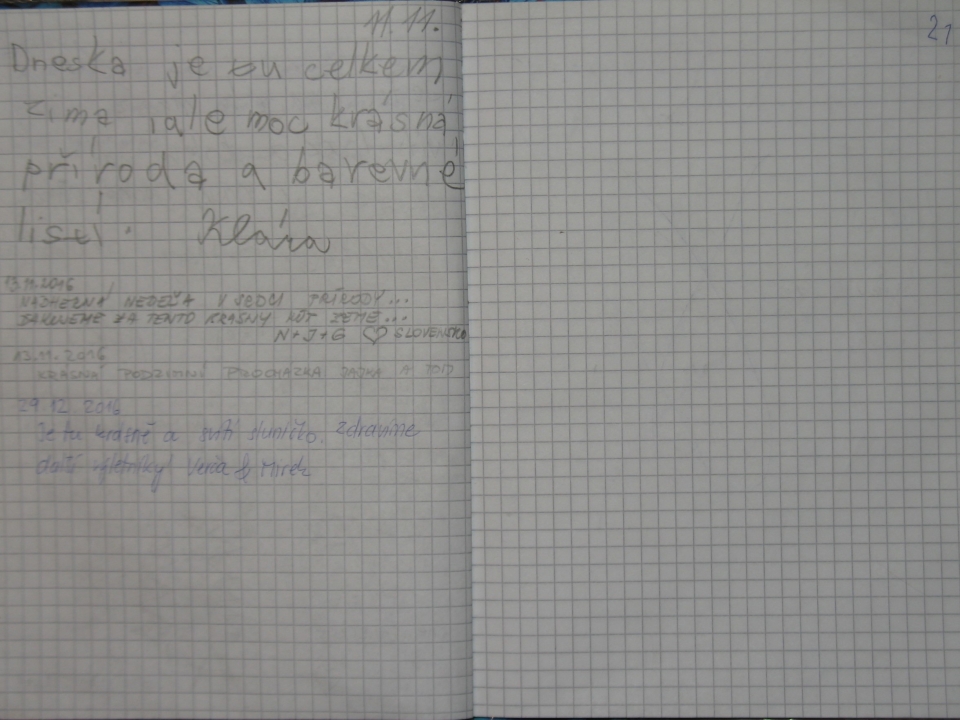 11.11.
Dneska je tu celkem
zima, ale moc krásná
příroda a barevné
listí. Klára
13.11.2016
NÁDHERNÁ NEDEĽA V SRDCI PRÍRODY...
ĎAKUJEME ZA TENTO KRÁSNY KÚT ZEME...
N+J+G ♡ SLOVENSKO
13.11.2016
KRÁSNÁ PODZIMNÍ PROCHÁZKA A
29.12.2016
Je tu krásně a svítí sluníčko. Zdravíme
další výletníky Verča & Mirek
21